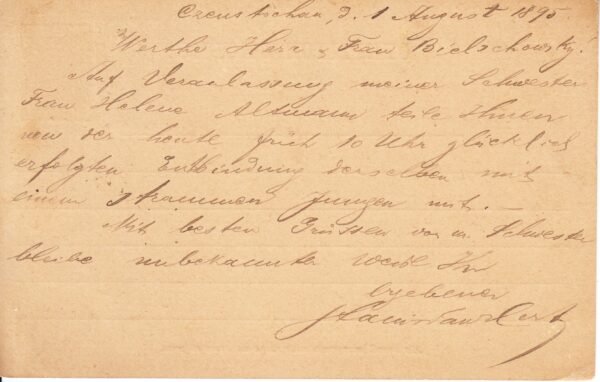 Czenstochau, d. 1 August 1895.
Werther Herr & Frau Bielschowsky!
Auf Veranlassung meiner Schwester
Frau Helene Altmann teile Ihnen
von der heute früh 10 Uhr glücklich
erfolgten Entbindung derselben mit
einem strammen Jungen mit. —
Mit besten Grüssen von m. Schwester
bleibe unbekannter Weise Ihr
ergebener
Stanislaus Herz